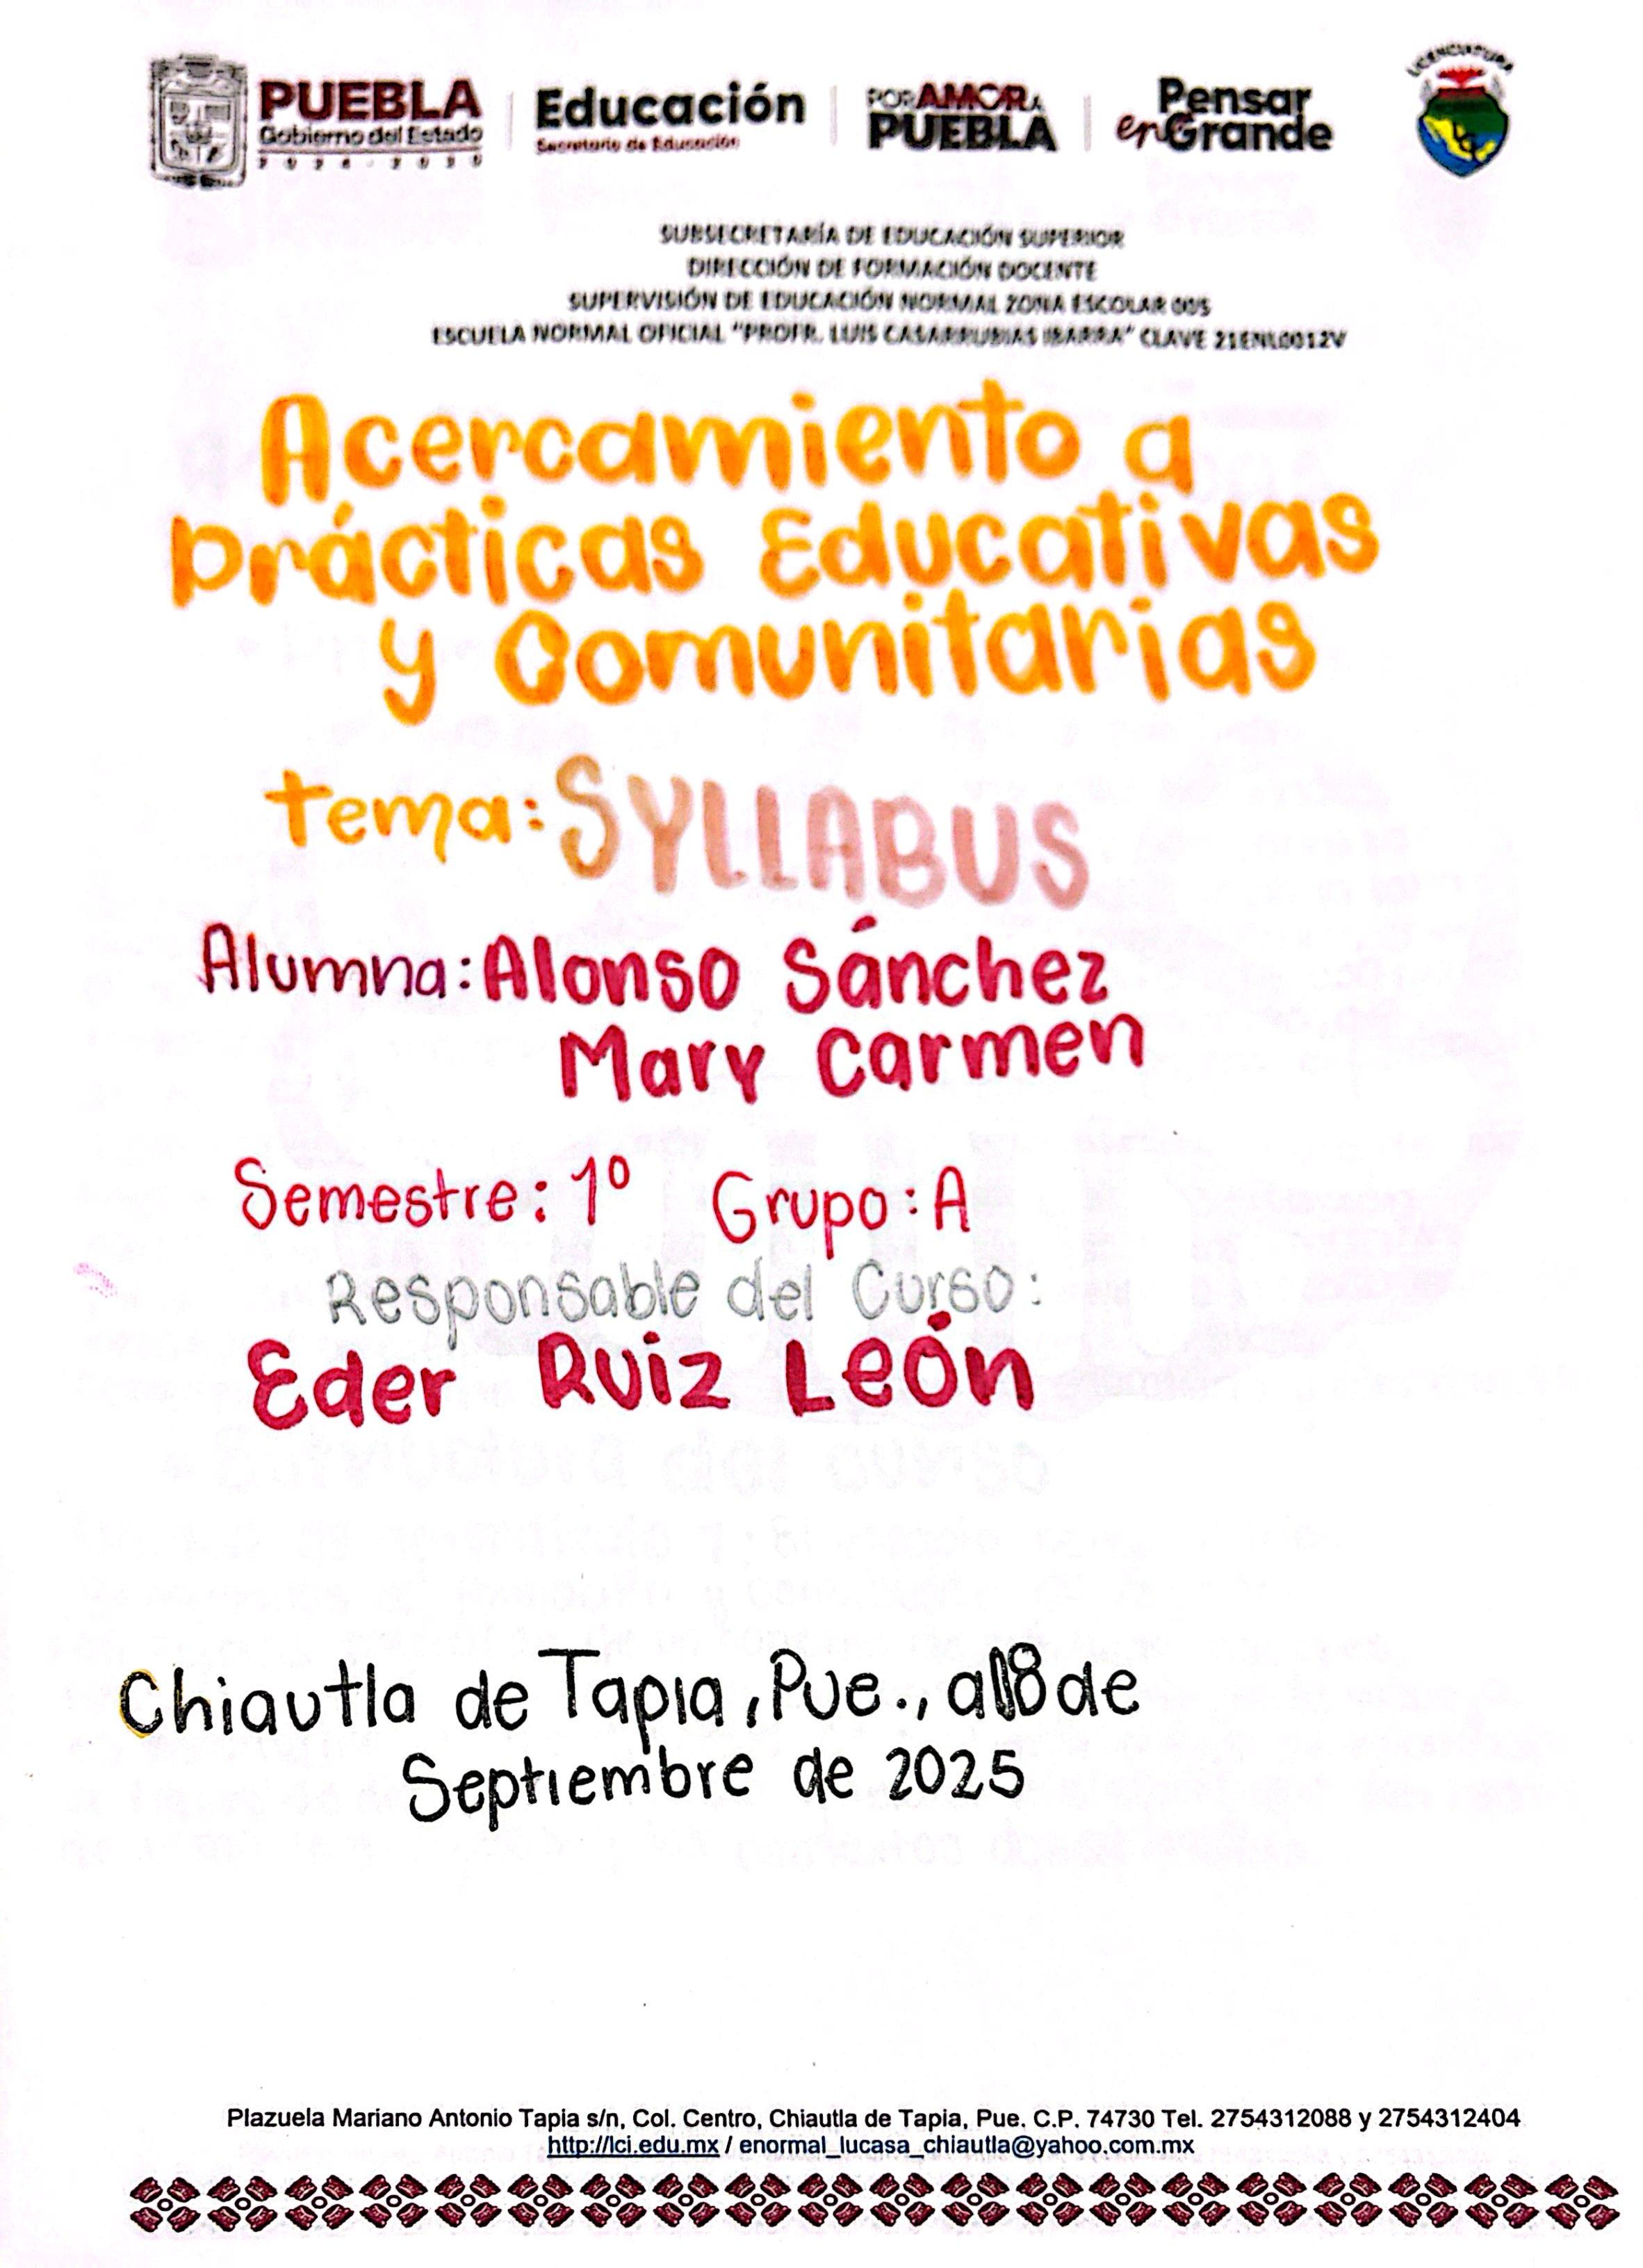 PUEBLA
Gobierno del Estado
Educación
Secretaría de Educación
POR AMOR A
PUEBLA
Pensar
en Grande
LICENCIATURA
SUBSECRETARÍA DE EDUCACIÓN SUPERIOR
DIRECCIÓN DE FORMACIÓN DOCENTE
SUPERVISIÓN DE EDUCACIÓN NORMAL ZONA ESCOLAR 005
ESCUELA NORMAL OFICIAL "PROFR. LUIS CASARRUBIAS IBARRA" CLAVE 21ENL0012V
Acercamiento a
prácticas Educativas
y Comunitarias
tema: SYLLABUS
Alumna: Alonso Sánchez
Mary Carmen
Semestre: 1° Grupo: A
Responsable del Curso:
Eder Ruiz León
Chiautla de Tapia, Pue., a 18 de
Septiembre de 2025
Plazuela Mariano Antonio Tapia s/n, Col. Centro, Chiautla de Tapia, Pue. C.P. 74730 Tel. 2754312088 y 2754312404
http://lci.edu.mx / enormal_lucasa_chiautla@yahoo.com.mx